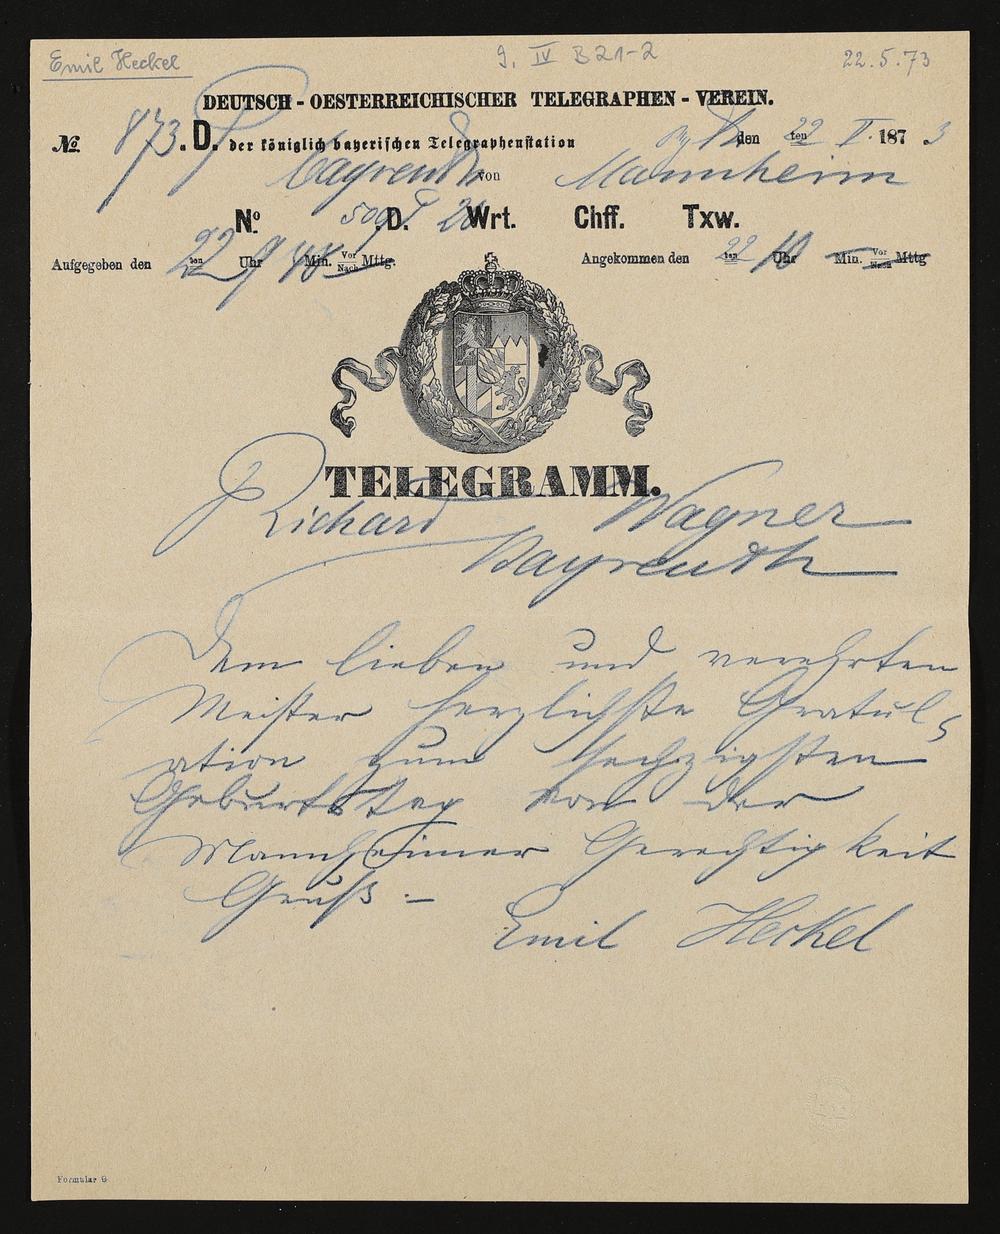 Emil Heckel
9. IV B 21-2
22.5.73
DEUTSCH-OESTERREICHISCHER TELEGRAPHEN-VEREIN.
No 873. D. der königlich bayerischen Telegraphenstation den 22 ten V. 1873
Bayreuth von Mannheim
No. 509 D. 20 Wrt. Chff. Txw.
Aufgegeben den 22 ten 9 Uhr 48 Min. Vor Nach Mttg.
Angekommen den 22 ten 10 Uhr Min. Vor Nach Mttg
TELEGRAMM.
Richard Wagner
Bayreuth
Dem lieben und verehrten
Meister herzlichste Gratul-
ation zum sechzigsten
Geburtstag von der
Mannheimer Gerechtigkeit
Gruß.-
Emil Heckel
Formular